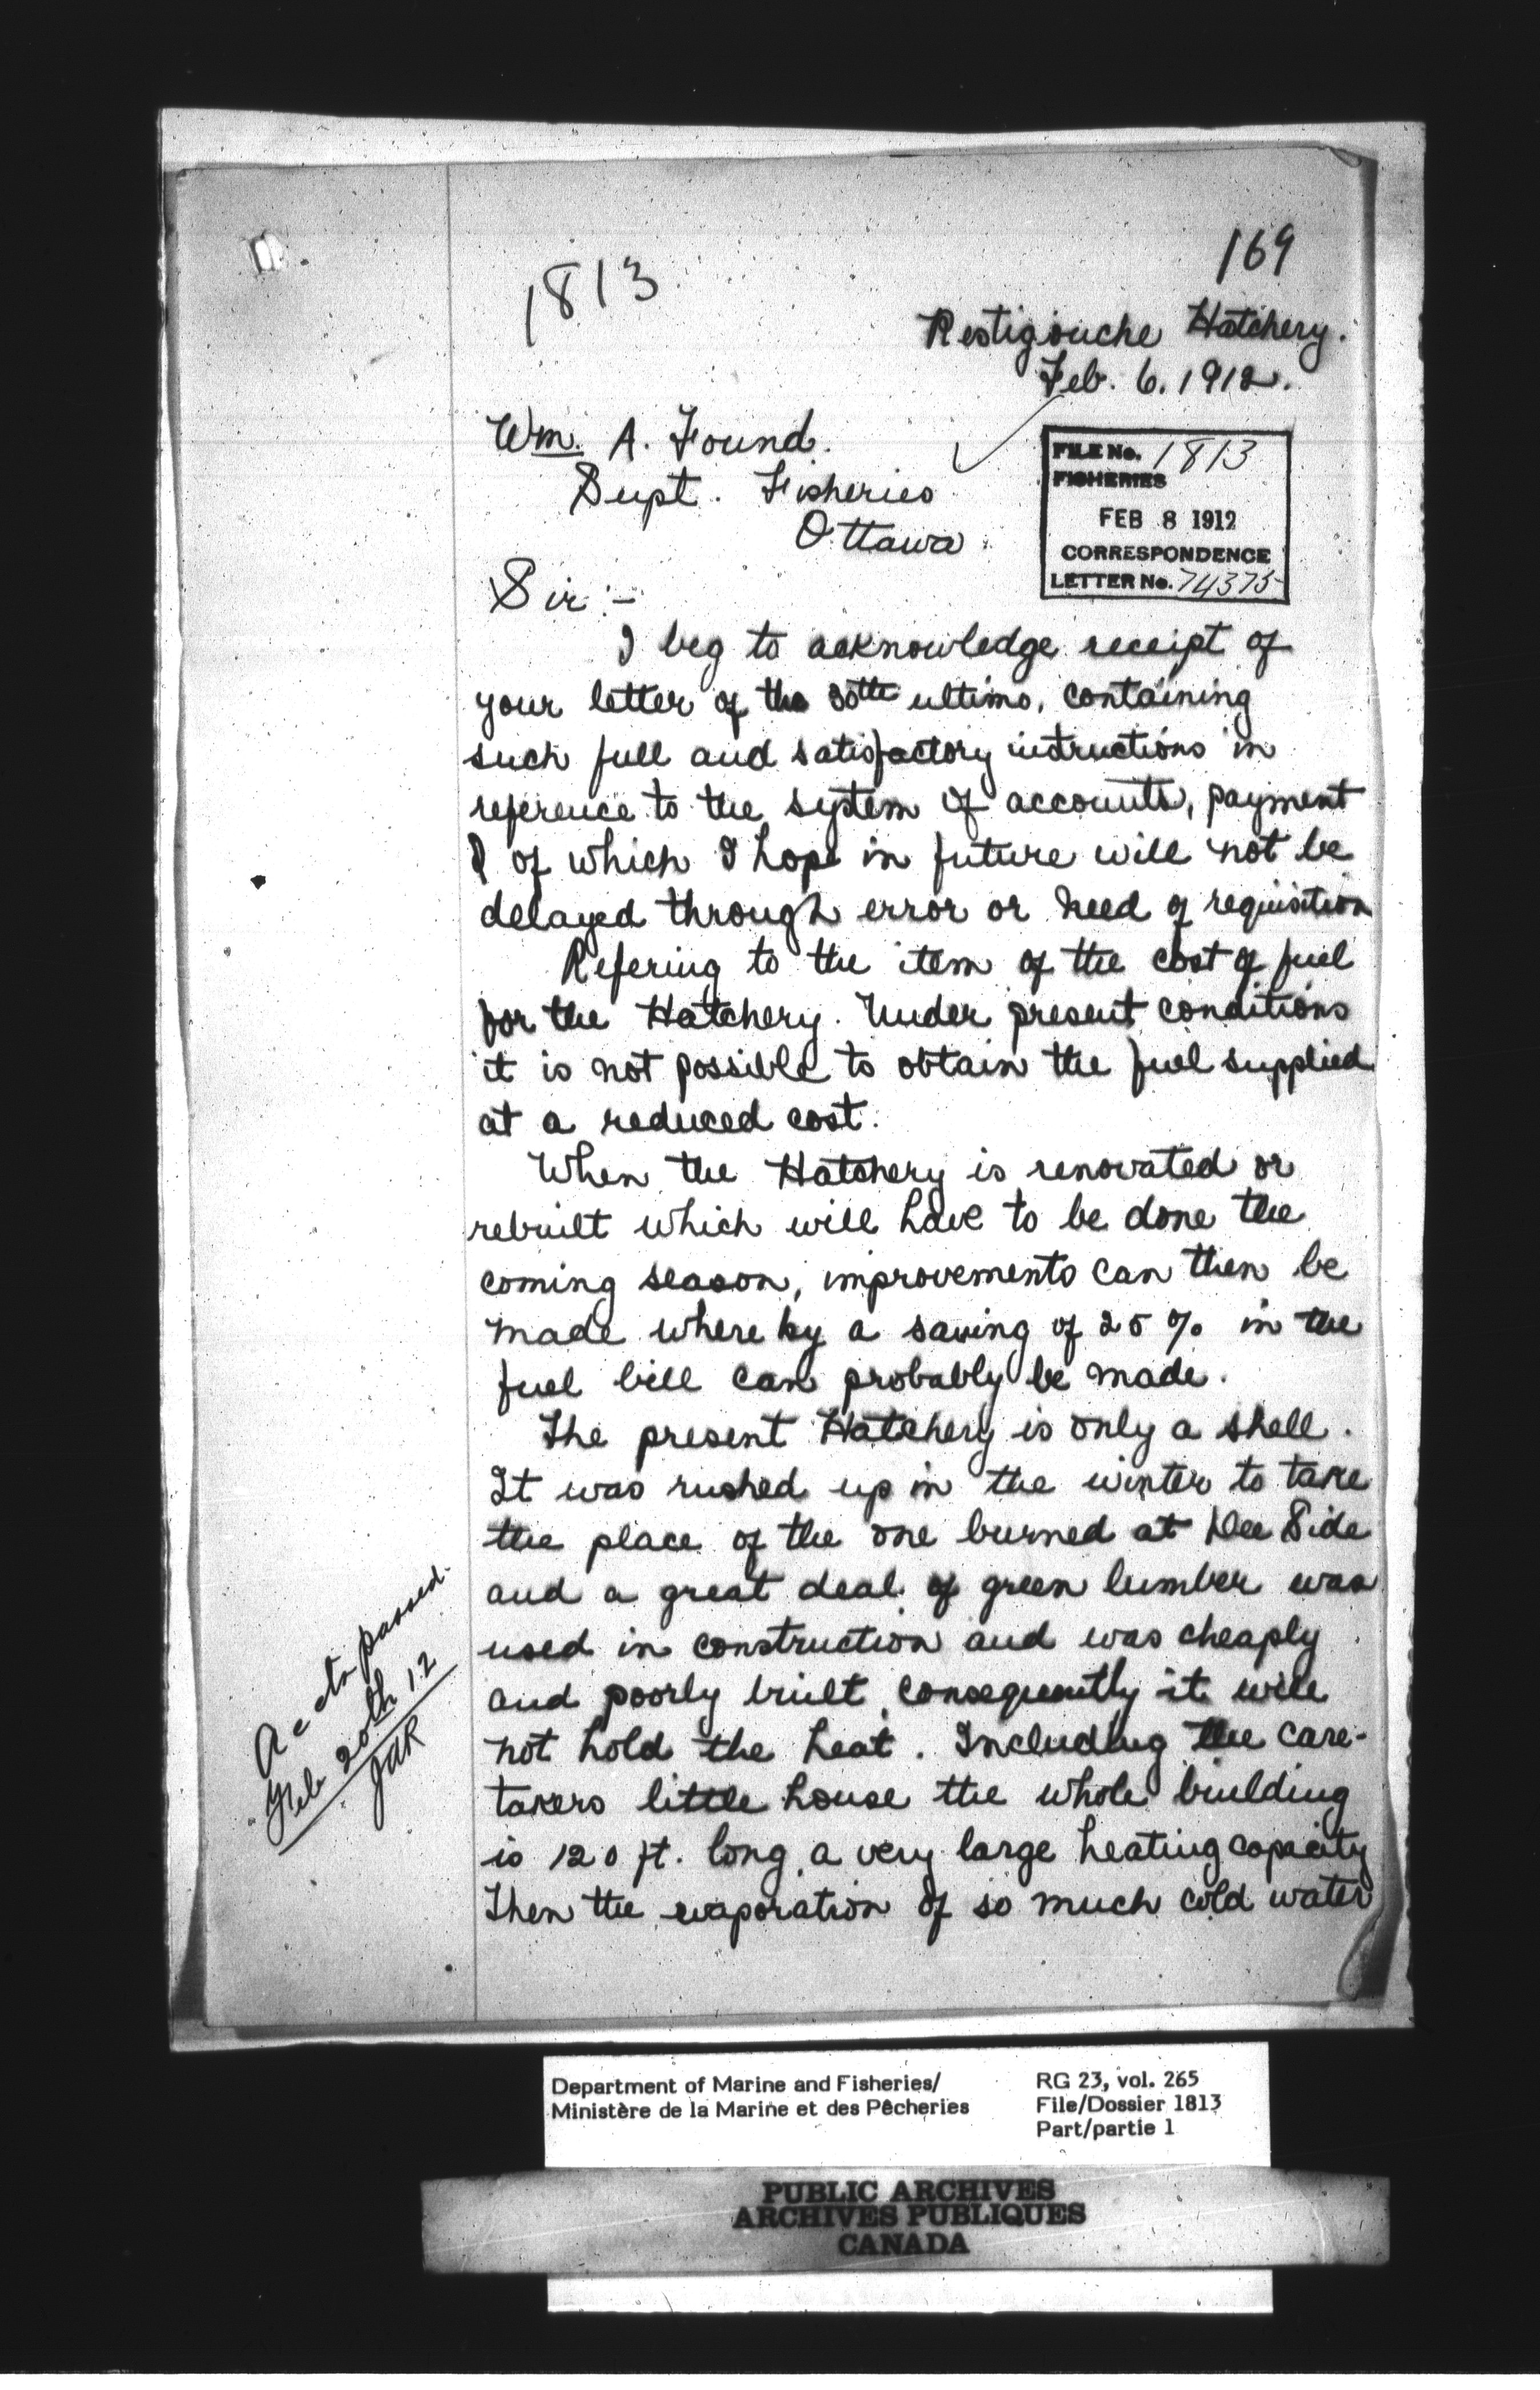 169
1813
Restigouche Hatchery.
Feb. 6. 1912.
Wm. A. Found.
Supt. Fisheries
Ottawa.
FILE No. 1813
FISHERIES
FEB 8 1912
CORRESPONDENCE
LETTER No. 74375
Sir :-
I beg to acknowledge receipt of
your letter of the 30th ultimo, containing
such full and satisfactory intructions in
reference to the system of accounts, payment
of which I hope in future will not be
delayed through error or need of requisition
Refering to the item of the cost of fuel
for the Hatchery. Under present conditions
it is not possible to obtain the fuel supplied
at a reduced cost.
When the Hatchery is renovated or
rebuilt which will have to be done the
coming season, improvements can then be
made where by a saving of 25 % in the
fuel bill can probably be made.
The present Hatchery is only a shell.
It was rushed up in the winter to take
the place of the one burned at Dee Side
and a great deal of green lumber was
used in construction and was cheaply
and poorly built, consequently it will
not hold the heat. Including the care-
takers little house the whole building
is 120 ft. long, a very large heating capacity
Then the evaporation of so much cold water
Accts passed.
Feb 20th 12
JAR
Department of Marine and Fisheries/
Ministère de la Marine et des Pêcheries
RG 23, vol. 265
File/Dossier 1813
Part/partie 1
PUBLIC ARCHIVES
ARCHIVES PUBLIQUES
CANADA